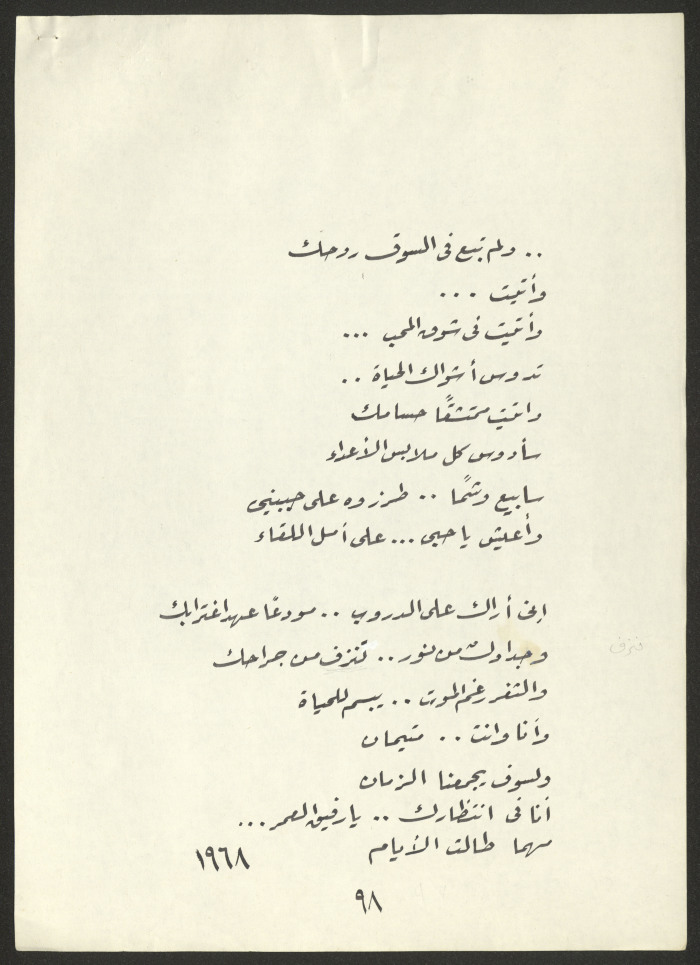 .. ولم تبع فى السوق روحك
وأتيت ...
وأتيت فى شوق المحب ...
تدوس أشواك الحياة ..
واتيت ممتشقًا حسامك
سأدوس كل ملابس الأعداء
سابيع وشمًا .. طرزوه على جبيني
وأعيش يا حبى ... على أمل اللقاء
إنى أراك على الدروب .. مودعًا عهد اغترابك
وجداول من نور .. تنزف من جراحك
والثغر رغم الموت .. يبسم للحياة
وأنا وانت .. متيمان
ولسوف يجمعنا الزمان
أنا فى انتظارك .. يا رفيق العمر ...
مهما طالت الأيام
١٩٦٨
٩٨